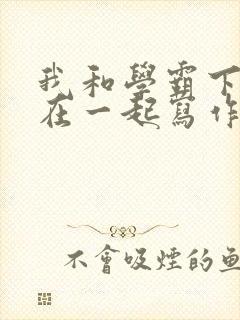 我和學霸下
在一起寫作
不會吸煙的魚